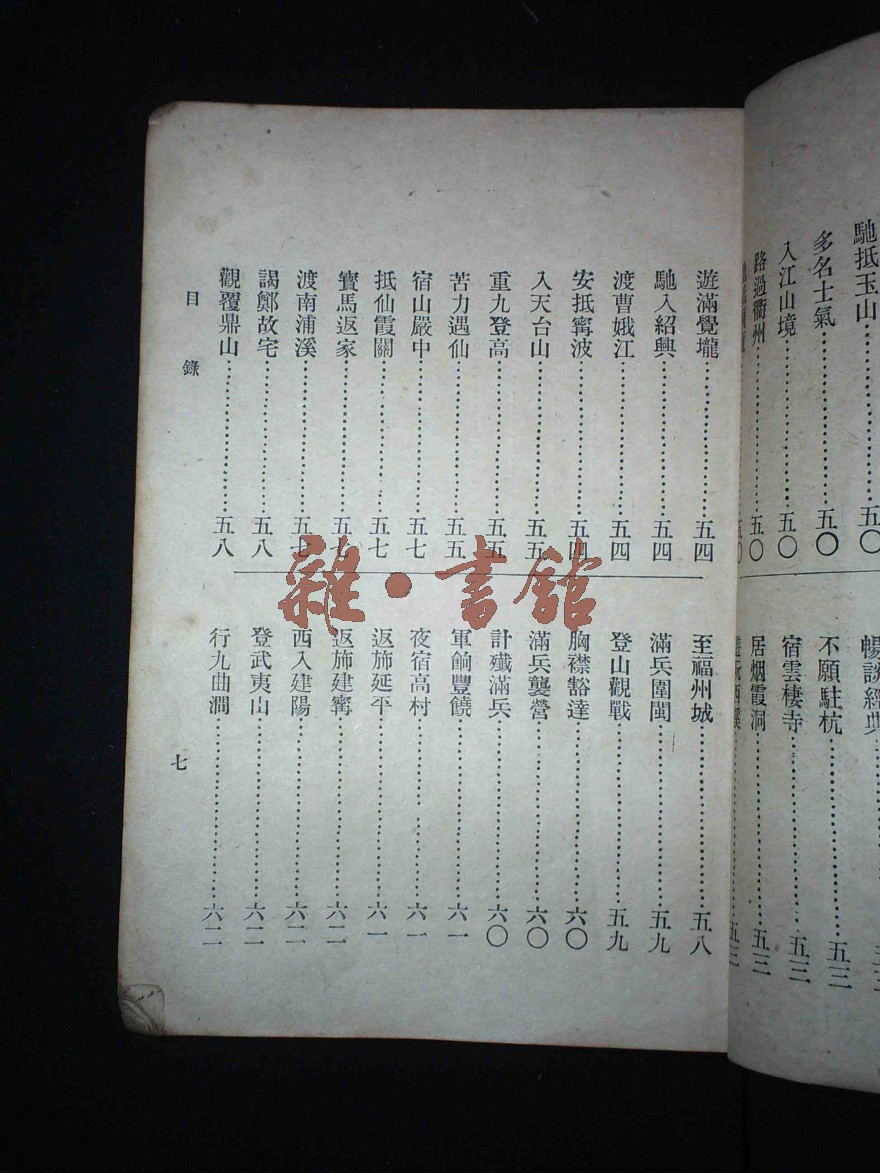 馳抵玉山……五〇
多名士氣……五〇
入江山境……五〇
路過衢州……五〇
暢談經典
不願駐杭……五三
宿雲棲寺……五三
居烟霞洞……五三
遊滿覺壠……五四
馳入紹興……五四
渡曹娥江……五四
安抵甯波……五四
入天台山……五五
重九登高……五五
苦力遇仙……五五
宿山巖中……五七
抵仙霞關……五七
寶馬返家……五七
渡南浦溪……五七
謁鄭故宅……五八
觀覆鼎山……五八
至福州城……五八
滿兵圍閩……五九
登山觀戰……五九
胸襟豁達……六〇
滿兵襲營……六〇
計殲滿兵……六〇
軍餉豐饒……六一
夜宿高村……六一
返斾延平……六一
返斾建甯……六二
西入建陽……六二
登武夷山……六二
行九曲澗……六二
目錄
七
雜·書館